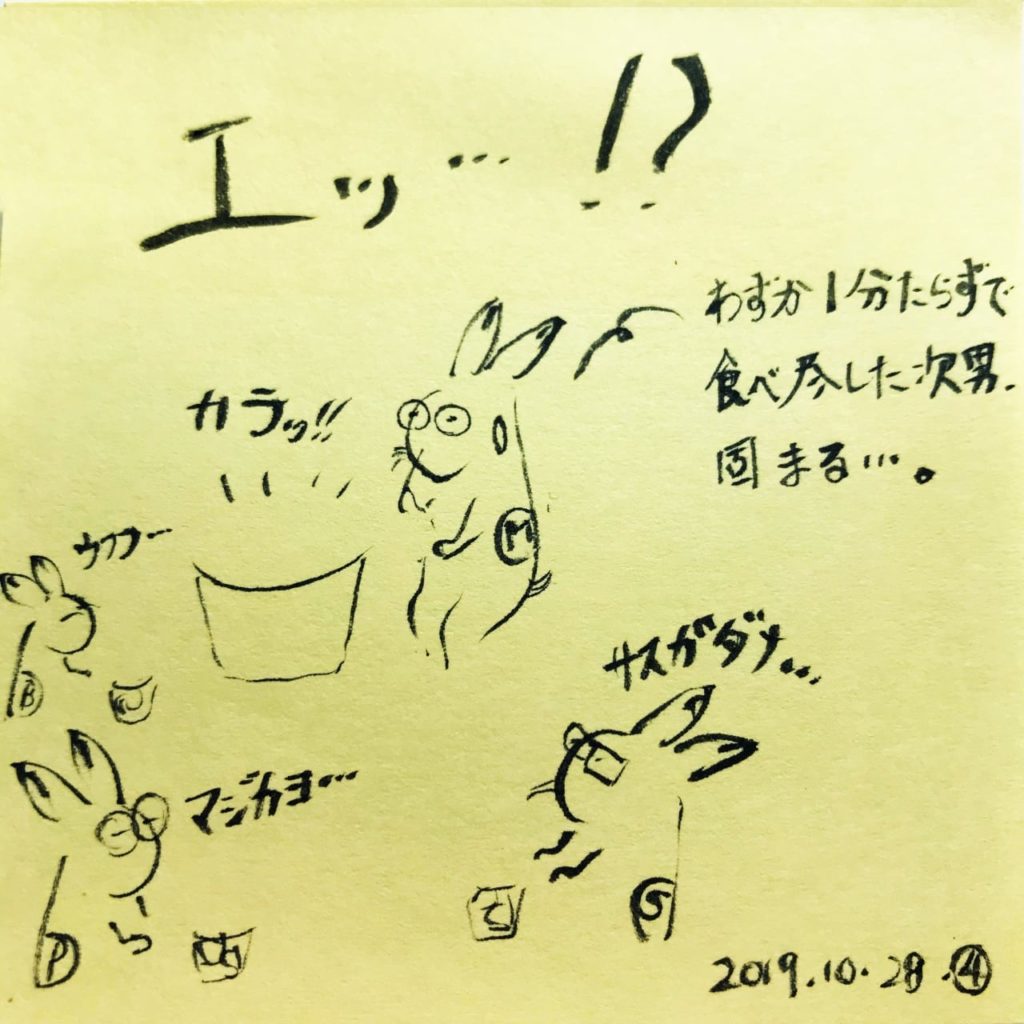 エッ…!?
わずか1分たらずで
食べ尽した次男.
固まる…。
カラッ!!
M
ウフフー…
B
サスガダナ…
マジカヨ…
P
S
2019.10.28.④